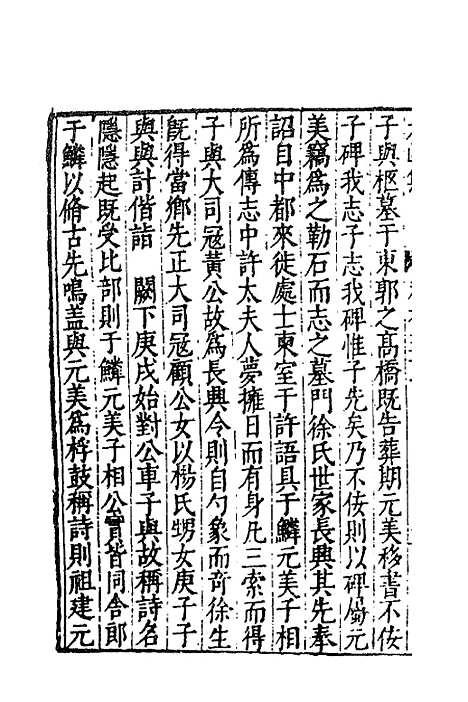 子與柩墓于東郭之髙橋既告葬期元美移書不佞
子碑我志子志我碑惟子先矣乃不佞則以碑屬元
美竊爲之勒石而志之墓門徐氏世家長興其先奉
詔自中都來徙處士東室于許語具于鱗元美子相
所爲傳志中許太夫人夢擁日而有身凡三索而得
子與大司寇黃公故爲長興令則自勺象而竒徐生
既得當鄉先正大司寇顧公女以楊氏甥女庚子子
與與計偕詣　闕下庚戌始對公車子與故稱詩名
隱隱起既受比部則于鱗元美子相公實皆同舍郎
于鱗以脩古先鳴盖與元美爲桴鼓稱詩則祖建元